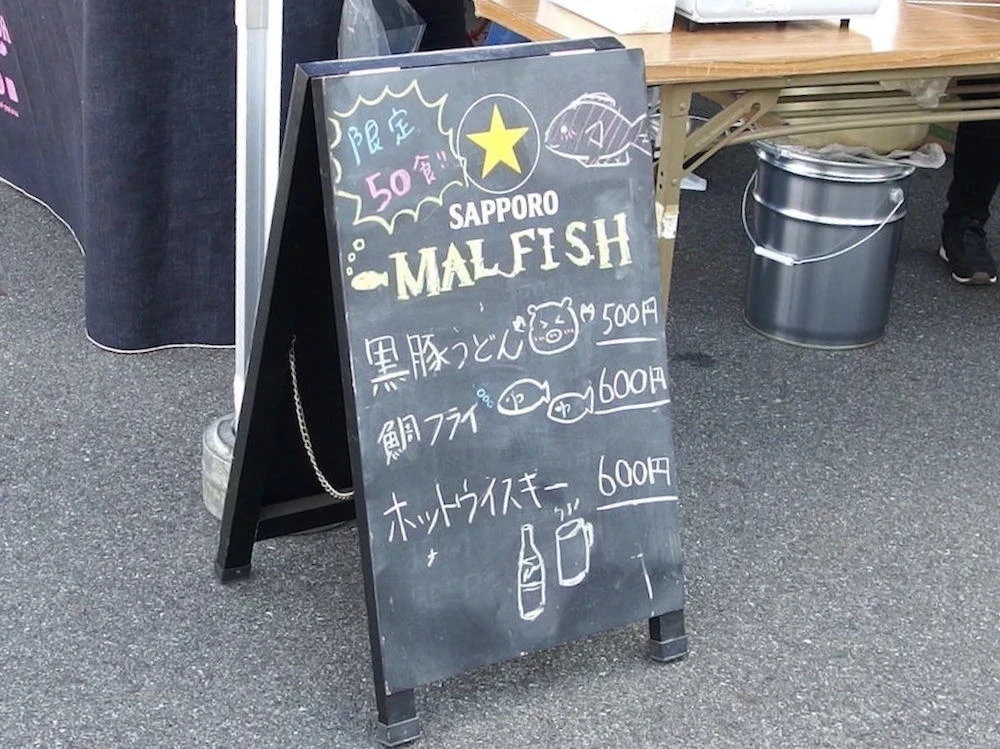 限定
50食!!
SAPPORO
MALFISH
黒豚うどん 500円
鯛フライ 600円
ホットウイスキー 600円